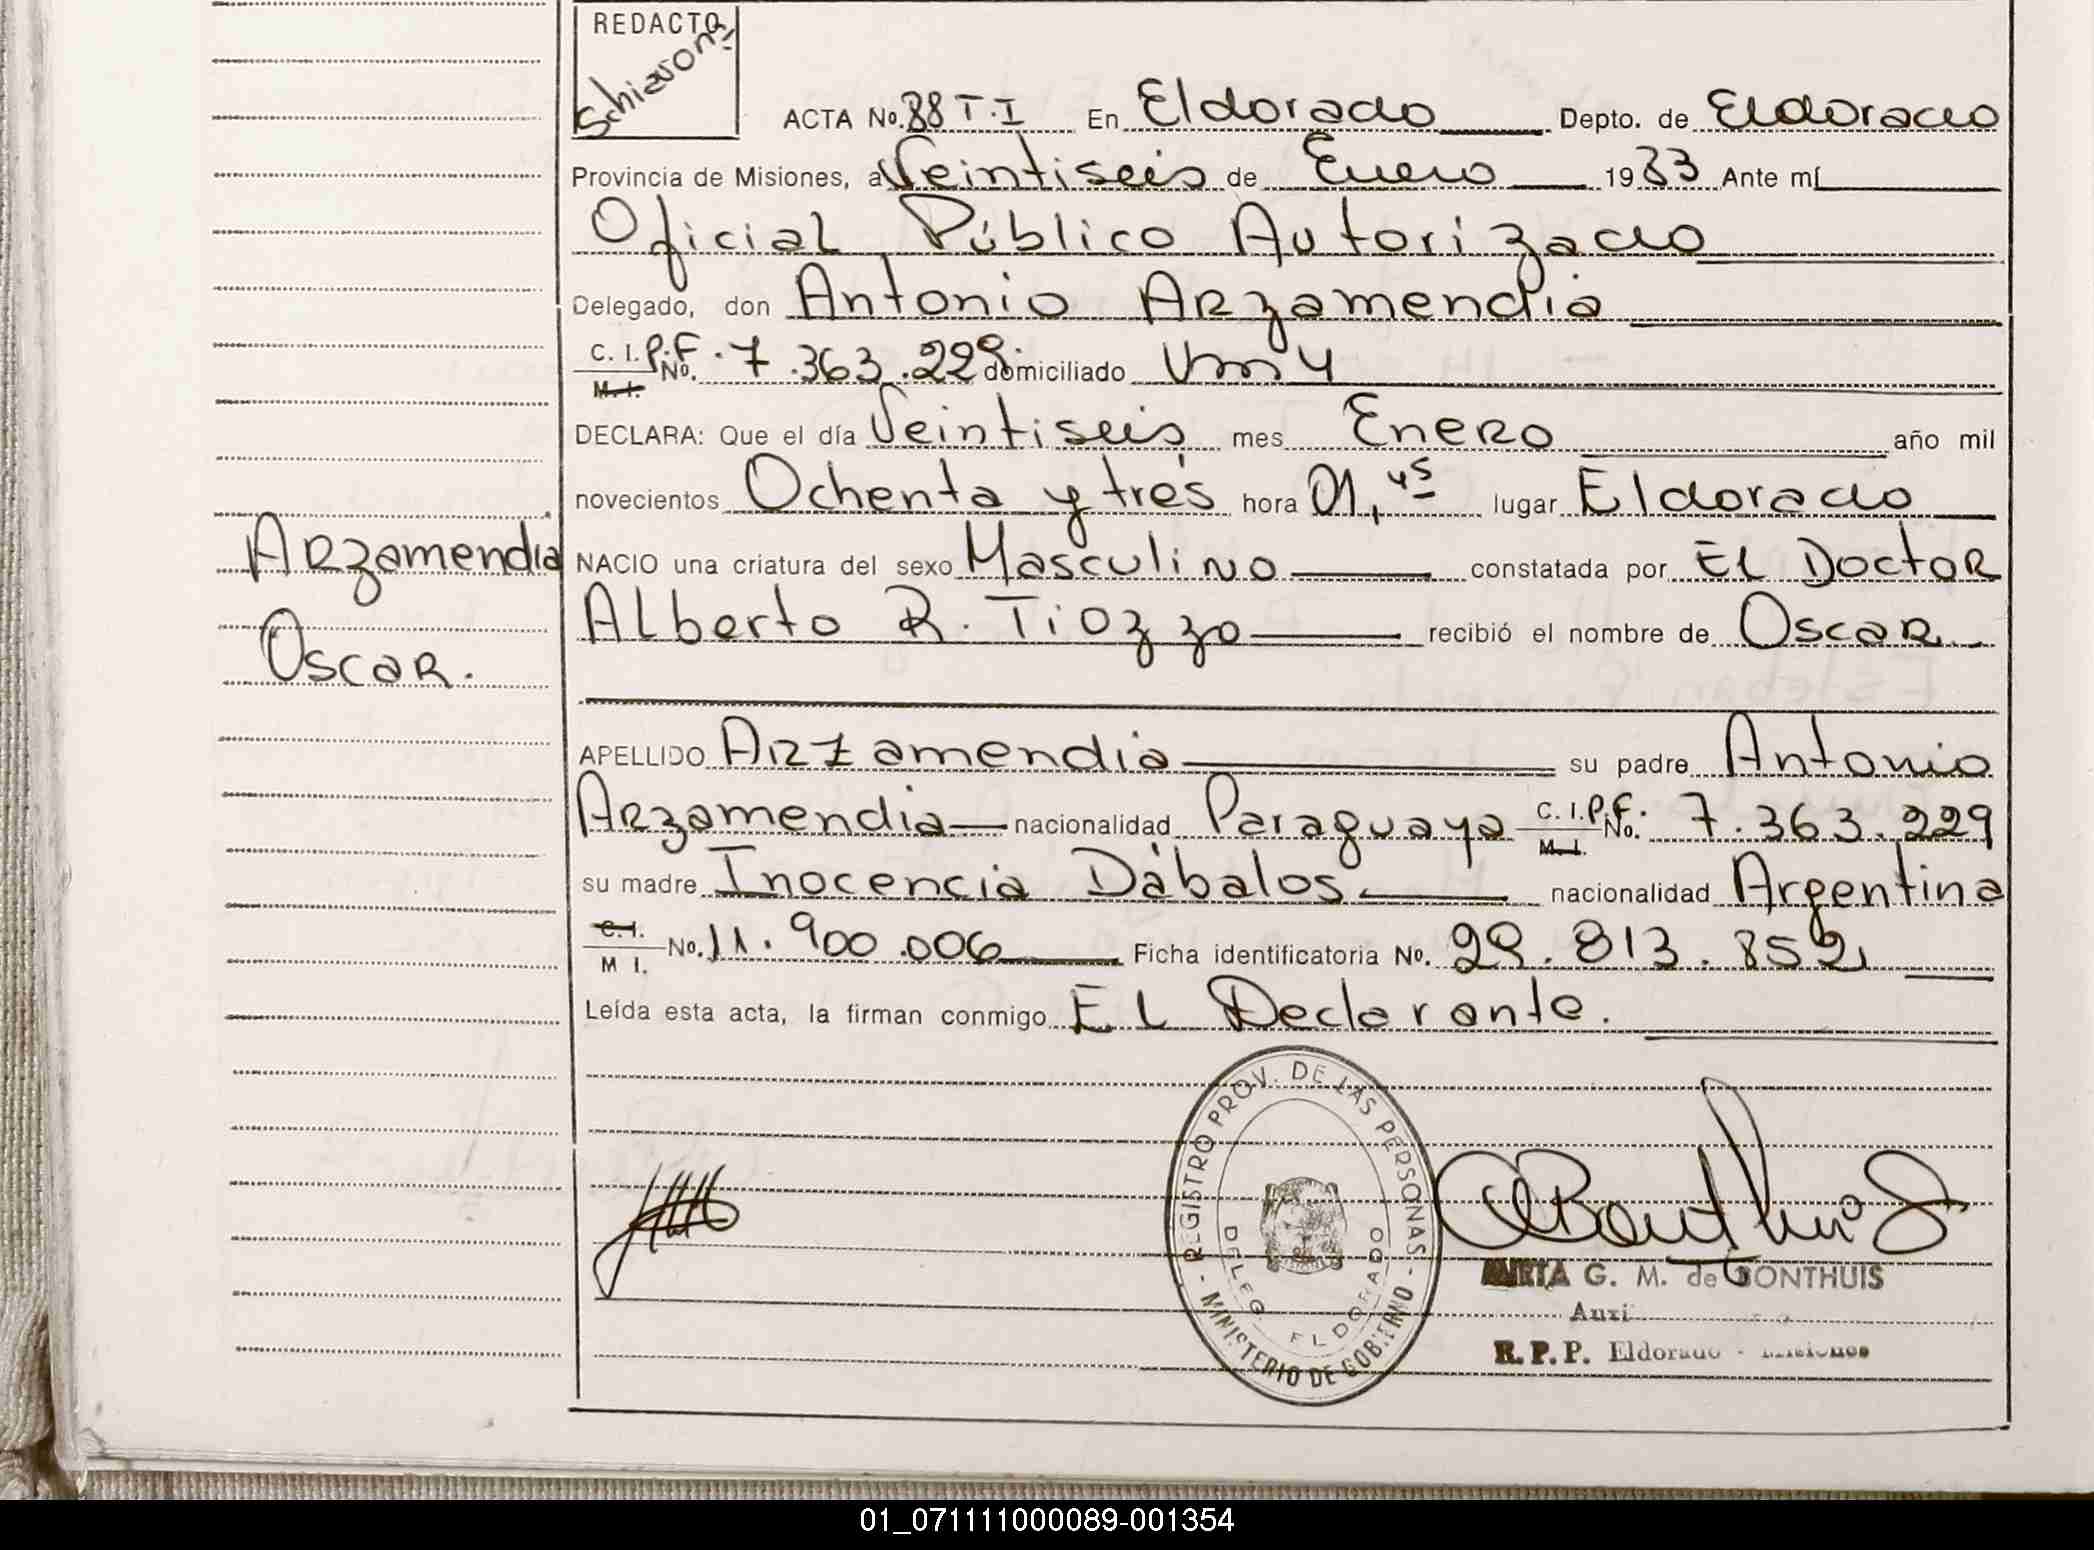 REDACTO
Schiavoni
ACTA No. 88 T.I En Eldorado Depto. de Eldorado
Provincia de Misiones, a Veintiseis de Enero 1983 Ante mí
Oficial Público Autorizado
Delegado, don Antonio Arzamendia
C. I. P.F. No. 7.363.229 domiciliado Km 4
M. I.
DECLARA: Que el día Veintiseis mes Enero año mil
novecientos Ochenta y tres hora 01,45 lugar Eldorado
Arzamendia
NACIO una criatura del sexo Masculino constatada por El Doctor
Oscar.
Alberto R. Tiozzo recibió el nombre de Oscar
APELLIDO Arzamendia su padre Antonio
Arzamendia nacionalidad Paraguaya C. I. P.F. No. 7.363.229
M. I.
su madre Inocencia Dábalos nacionalidad Argentina
C. I.
M I. No. 11.900.006 Ficha identificatoria No. 29.813.852
Leída esta acta, la firman conmigo El Declarante.
REGISTRO PROV. DE LAS PERSONAS - MINISTERIO DE GOBIERNO -
DELEG. ELDORADO
MIRTA G. M. de BONTHUIS
R. P. P. Eldorado - Misiones
01_071111000089-001354